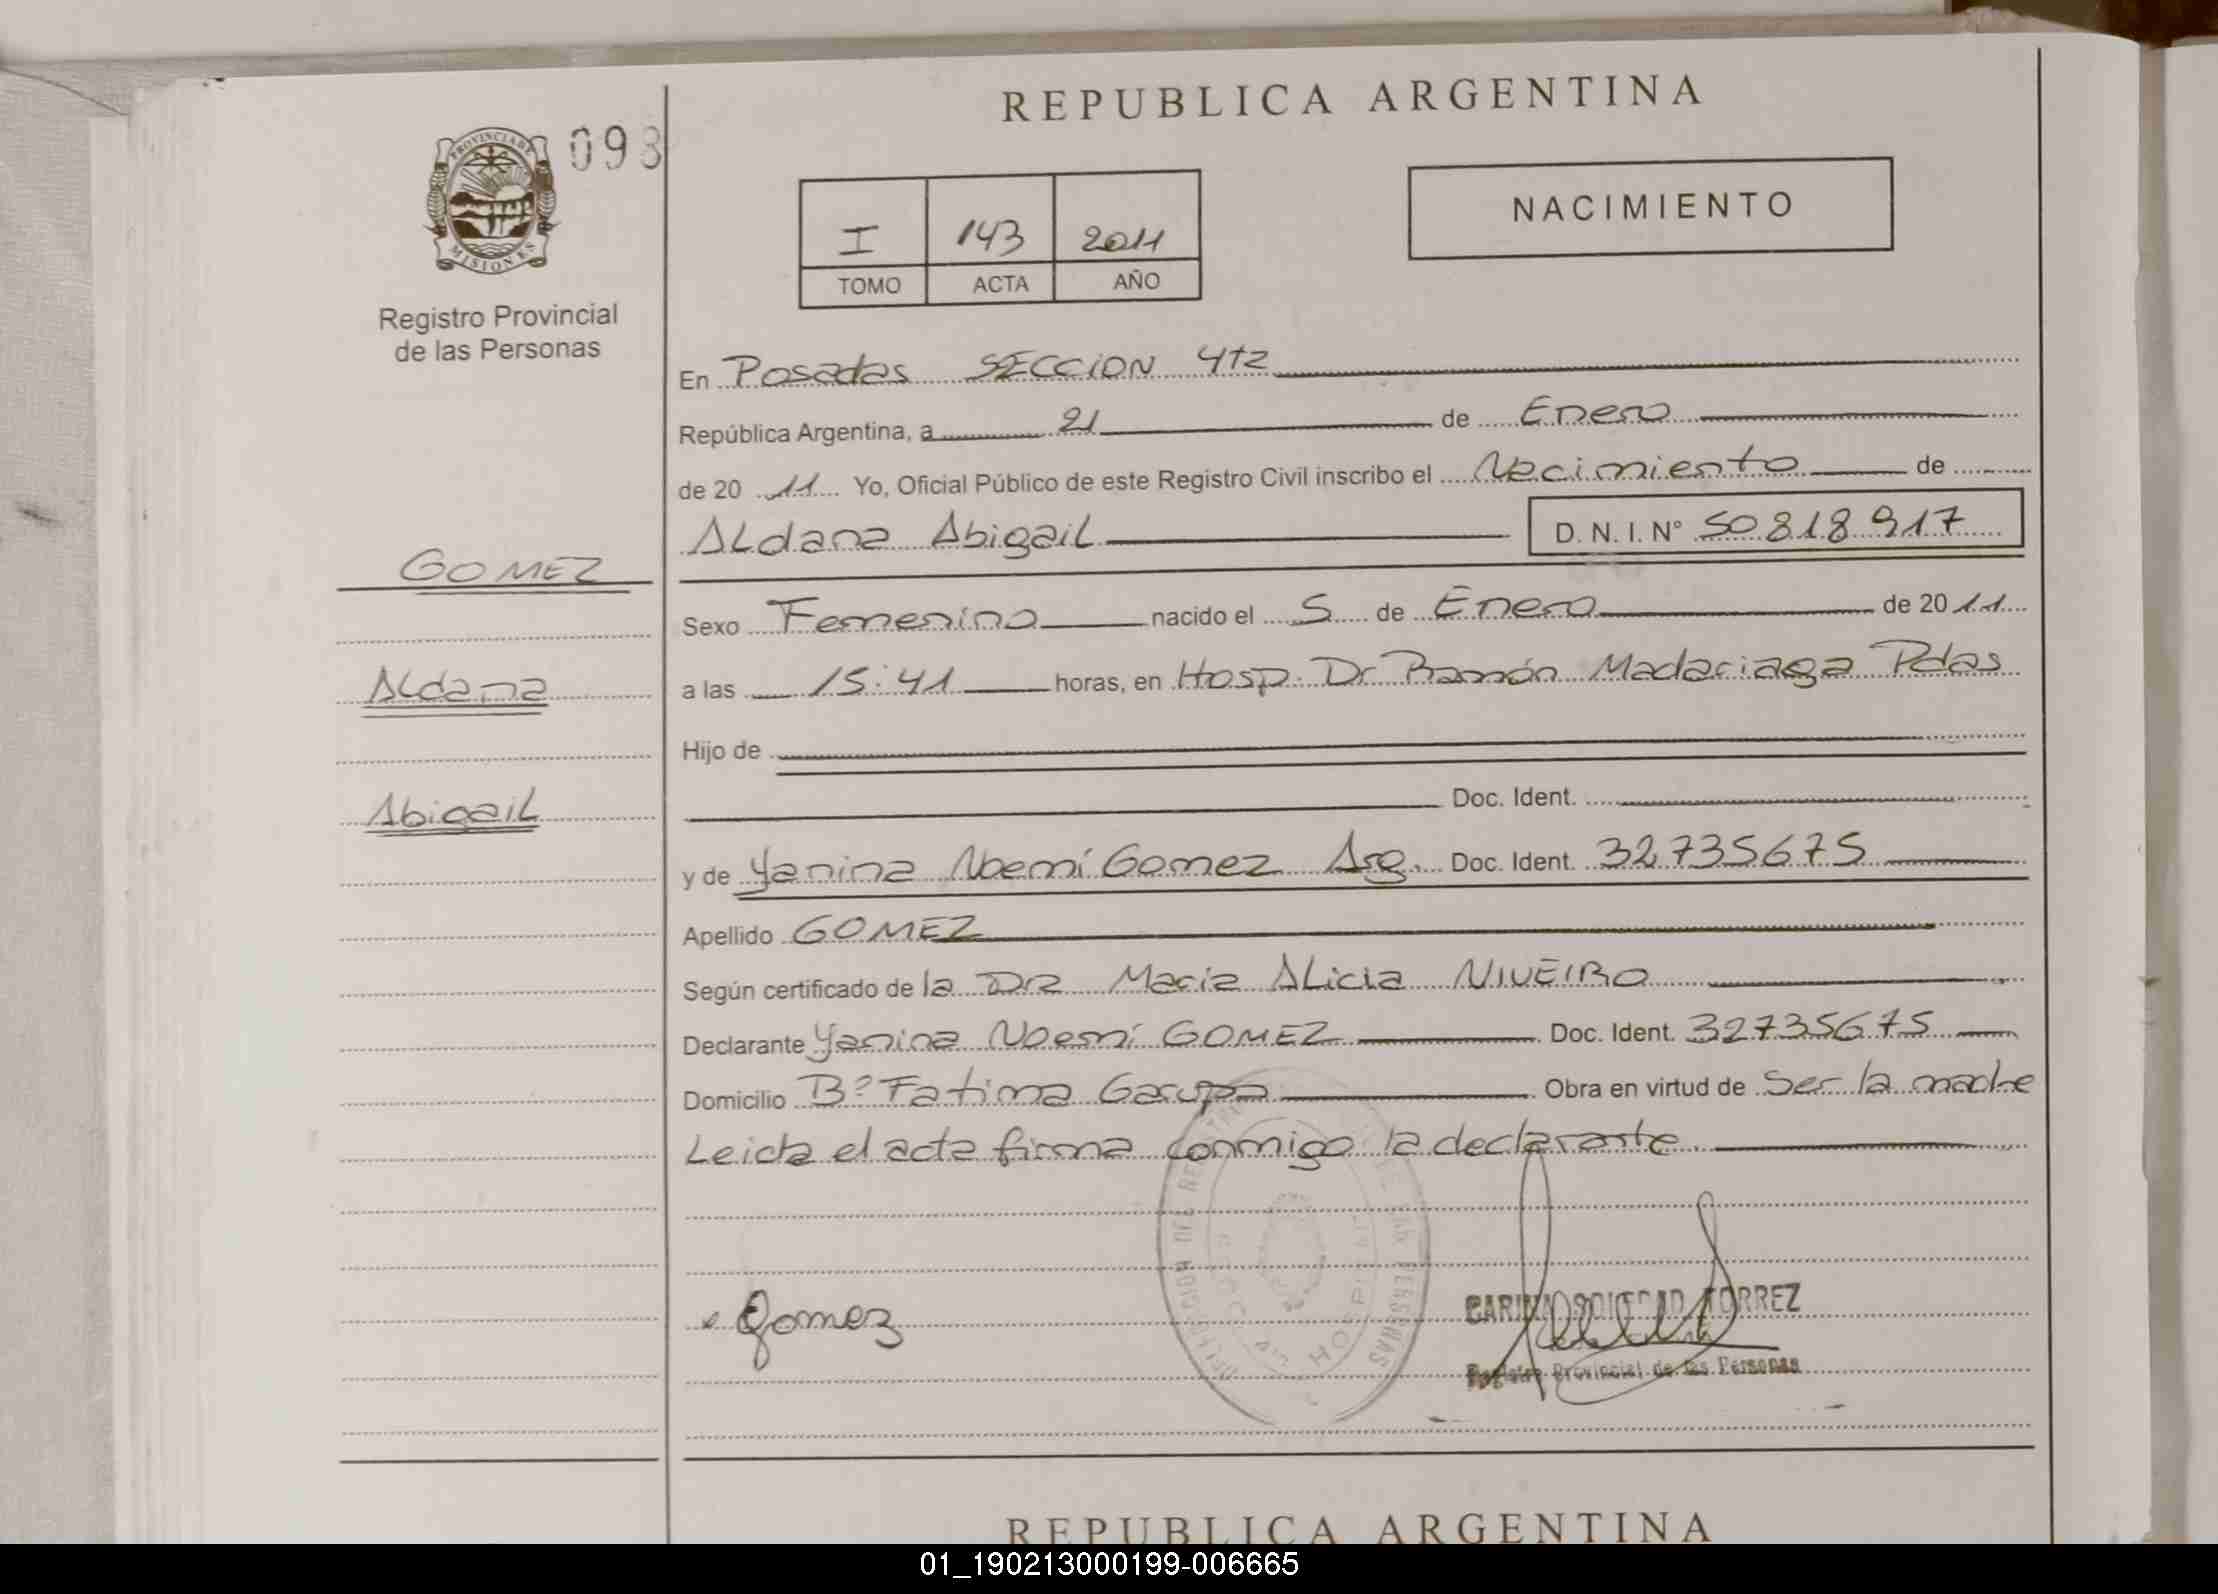 REPUBLICA ARGENTINA
PROVINCIA DE MISIONES
093
NACIMIENTO
I 143 2011
TOMO ACTA AÑO
Registro Provincial
de las Personas
En Posadas SECCION 4ta
República Argentina, a 21 de Enero
de 2011 Yo, Oficial Público de este Registro Civil inscribo el Nacimiento de
Aldana Abigail D. N. I. Nº 50 818 917
GOMEZ
Sexo Femenino nacido el 5 de Enero de 2011
Aldana
a las 15:41 horas, en Hosp. Dr Ramón Madariaga Pdas
Hijo de
Abigail
Doc. Ident.
y de Yanina Noemí Gomez Arg. Doc. Ident. 32735675
Apellido GOMEZ
Según certificado de la Dra Maria Alicia NIVEIRO
Declarante Yanina Noemí GOMEZ Doc. Ident. 32735675
Domicilio Bº Fatima Garupa Obra en virtud de Ser la madre
Leida el acta firma conmigo la declarante
Gomez
CARINA SOLEDAD TORREZ
Registro Provincial de las Personas
REPUBLICA ARGENTINA
01_190213000199-006665